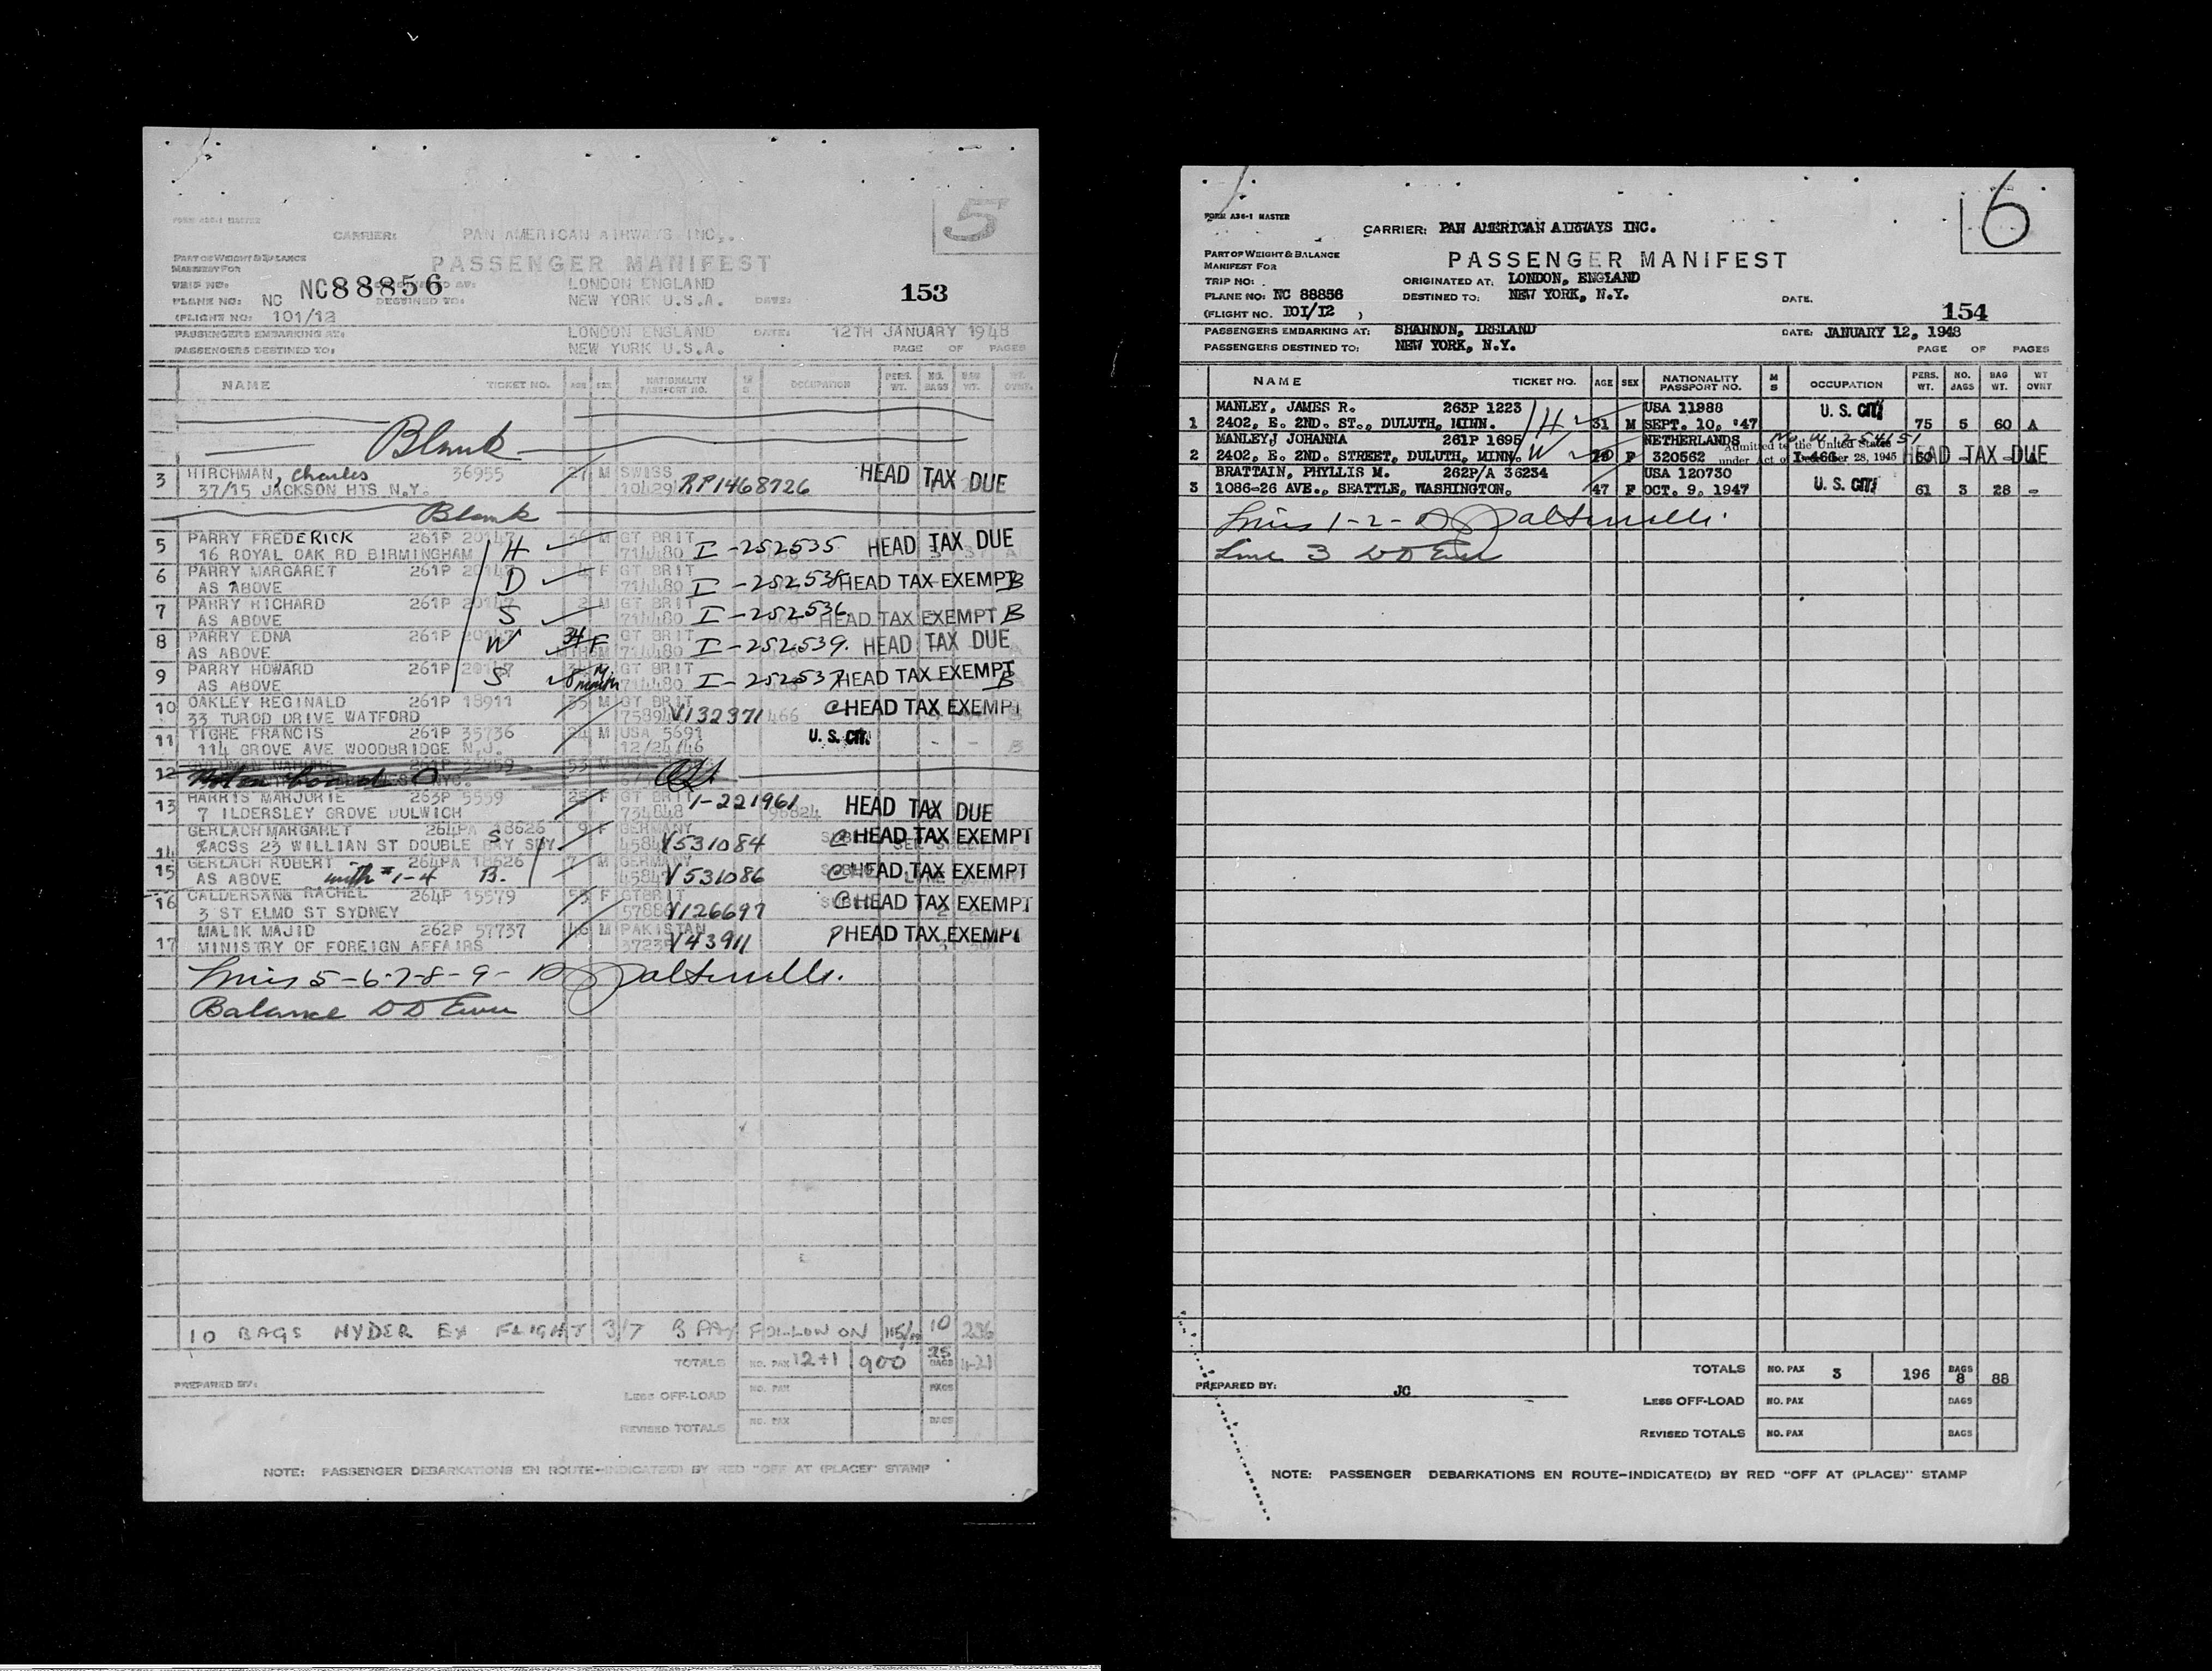 5
FORM A36-1 MASTER
CARRIER: PAN AMERICAN AIRWAYS INC.
PART OF WEIGHT & BALANCE
MANIFEST FOR
PASSENGER MANIFEST
TRIP NO:
LONDON ENGLAND
PLANE NO: NC NC88856 DESTINED TO: NEW YORK U.S.A. DATE: 153
(FLIGHT NO: 101/12
PASSENGERS EMBARKING AT: LONDON ENGLAND DATE: 12TH JANUARY 1948
PASSENGERS DESTINED TO: NEW YORK U.S.A. PAGE OF PAGES
NAME TICKET NO. AGE SEX NATIONALITY PASSPORT NO. OCCUPATION PERS. WT. NO. BAGS BAG WT. WT. OVNT.
Blank
3 HIRCHMAN, Charles 36955 27 M SWISS HEAD TAX DUE
37/15 JACKSON HTS N.Y. RP1468726
Blank
5 PARRY FREDERICK 261P 20147 H M GT BRIT I-252535 HEAD TAX DUE
16 ROYAL OAK RD BIRMINGHAM 714480
6 PARRY MARGARET 261P 20147 D F GT BRIT HEAD TAX EXEMPT B
AS ABOVE 714480
7 PARRY RICHARD 261P 20147 S 2 M GT BRIT I-252536 HEAD TAX EXEMPT B
AS ABOVE 714480
8 PARRY EDNA 261P 20147 W 34 F GT BRIT I-252539. HEAD TAX DUE
AS ABOVE 714480
9 PARRY HOWARD 261P 20147 S 8 months M GT BRIT I-252537 HEAD TAX EXEMPT B
AS ABOVE 714480
10 OAKLEY REGINALD 261P 18911 35 M GT BRIT V132371 C HEAD TAX EXEMPT
33 TUROD DRIVE WATFORD
11 TIGHE FRANCIS 261P 35736 24 M USA 5691 U. S. CIT.
114 GROVE AVE WOODBRIDGE N.J. 12/24/46 B
12 53 M
13 HARRIS MARJORIE 263P 5559 25 F GT BRIT 1-221961 HEAD TAX DUE
7 ILDERSLEY GROVE DULWICH 734848
14 GERLACH MARGARET 264PA 18626 S 9 F GERMANY V531084 C HEAD TAX EXEMPT
%ACSS 23 WILLIAN ST DOUBLE BAY SDY
15 GERLACH ROBERT 264PA 18626 7 M GERMANY V531086 C HEAD TAX EXEMPT
AS ABOVE with #1-4 B.
16 CALDERSANG RACHEL 264P 15579 55 F GTBRIT V126697 C HEAD TAX EXEMPT
3 ST ELMO ST SYDNEY
17 MALIK MAJID 262P 57737 46 M PAKISTAN V43911 P HEAD TAX EXEMPT
MINISTRY OF FOREIGN AFFAIRS
Lines 5-6-7-8-9-
Balance
10 BAGS HYDER EX FLIGHT 3/7 B PAY FOLLOW ON 10 236
TOTALS NO. PAX 12+1 900 25 BAGS 421
PREPARED BY:
LESS OFF-LOAD NO. PAX BAGS
REVISED TOTALS NO. PAX BAGS
NOTE: PASSENGER DEBARKATIONS EN ROUTE-INDICATE(D) BY RED "OFF AT (PLACE)" STAMP
6
FORM A36-1 MASTER
CARRIER: PAN AMERICAN AIRWAYS INC.
PART OF WEIGHT & BALANCE
MANIFEST FOR
PASSENGER MANIFEST
TRIP NO: ORIGINATED AT: LONDON, ENGLAND
PLANE NO: NC 88856 DESTINED TO: NEW YORK, N.Y. DATE.
(FLIGHT NO. 101/12 ) 154
PASSENGERS EMBARKING AT: SHANNON, IRELAND DATE: JANUARY 12, 1948
PASSENGERS DESTINED TO: NEW YORK, N.Y. PAGE OF PAGES
NAME TICKET NO. AGE SEX NATIONALITY PASSPORT NO. M S OCCUPATION PERS. WT. NO. BAGS BAG WT. WT OVNT
1 MANLEY, JAMES R. 263P 1223 H 31 M USA 11988 U. S. CIT. 75 5 60 A
2402, E. 2ND. ST., DULUTH, MINN. SEPT. 10, '47
2 MANLEY, JOHANNA 261P 1695 W F NETHERLANDS Admitted to the United States HEAD TAX DUE
2402, E. 2ND. STREET, DULUTH, MINN. 320562 under Act of December 28, 1945 60
3 BRATTAIN, PHYLLIS M. 262P/A 36234 47 F USA 120730 U. S. CIT. 61 3 28 -
1086-26 AVE., SEATTLE, WASHINGTON. OCT. 9, 1947
Lines 1-2-
Line 3
TOTALS NO. PAX 3 196 BAGS 8 88
PREPARED BY: JC
LESS OFF-LOAD NO. PAX BAGS
REVISED TOTALS NO. PAX BAGS
NOTE: PASSENGER DEBARKATIONS EN ROUTE-INDICATE(D) BY RED "OFF AT (PLACE)" STAMP